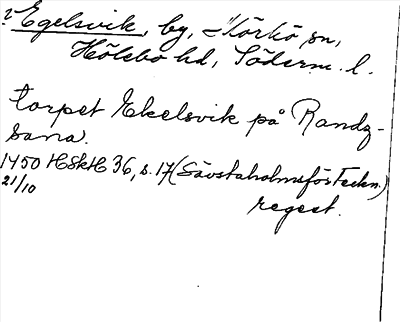 ? Egelsvik, by, Mörkö sn,
Hölebo hd, Söderm. l.
torpet Ekelsvik på Randz-
sana.
1450 HSkH 36, s. 17 (Sävstaholmsför Teckn.)
21/10
regest.